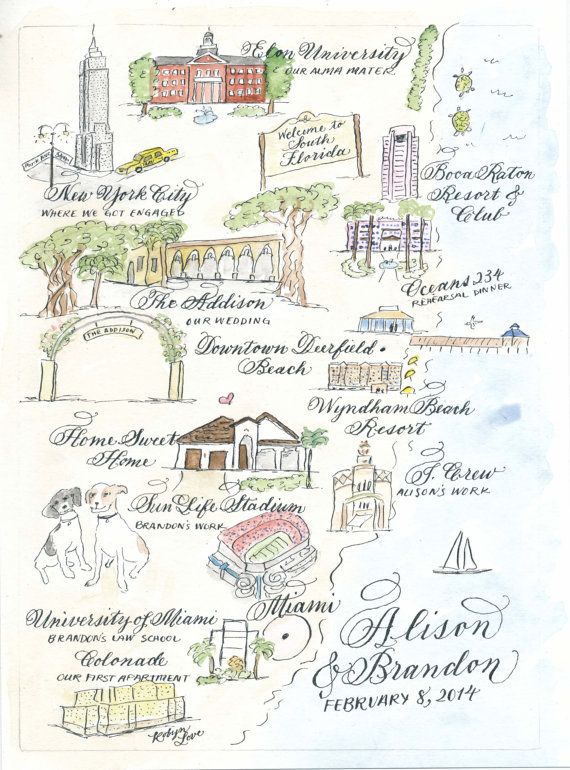 Elon University
OUR ALMA MATER
Welcome to
South
Florida
New York City
WHERE WE GOT ENGAGED
Boca Raton
Resort &
Club
Oceans 234
REHEARSAL DINNER
The Addison
OUR WEDDING
THE ADDISON
Downtown Deerfield
Beach
Wyndham Beach
Resort
Home Sweet
Home
J. Crew
ALISON'S WORK
Sun Life Stadium
BRANDON'S WORK
University of Miami
BRANDON'S LAW SCHOOL
Miami
Colonade
OUR FIRST APARTMENT
Alison
& Brandon
FEBRUARY 8, 2014
Robyn Love